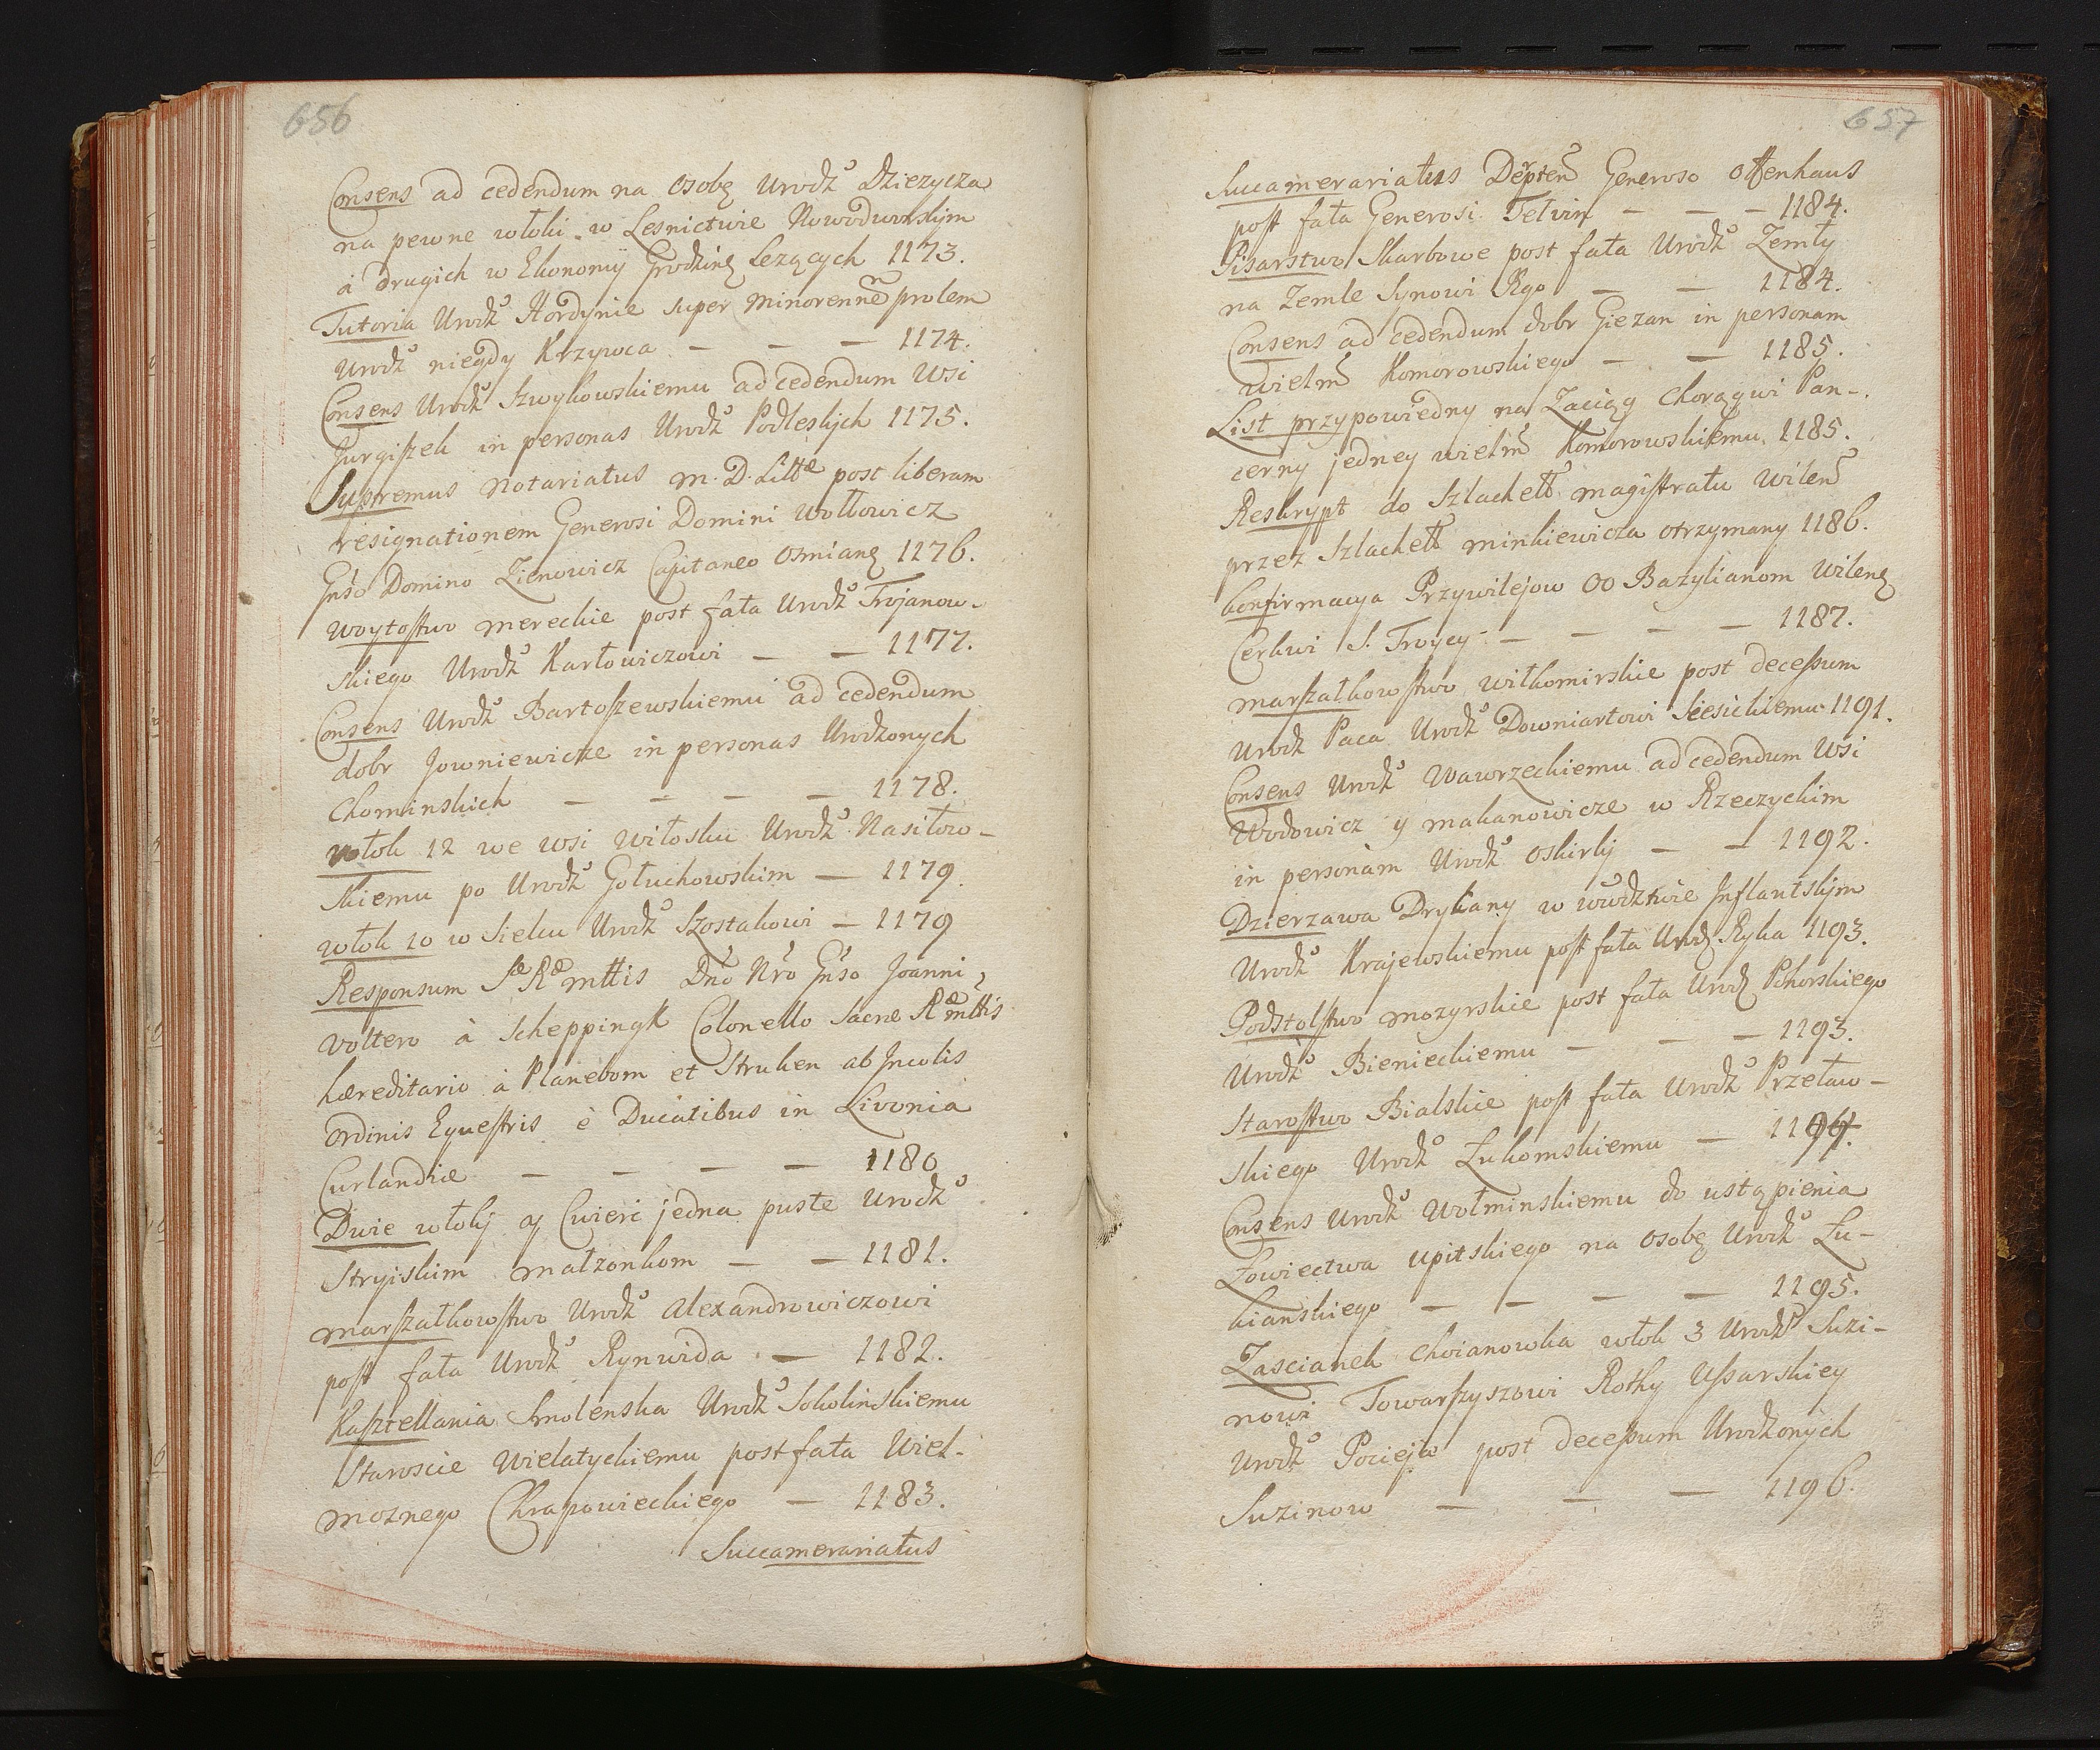 656
Consens ad cedendum na osobę Urodz° Dziezycza
na pewne włoki w Lesnictwie Nowodworskjm
à drugich w Ekonomÿ Grodzinę Lezących 1173.
Tutoria Urodz° Hordynie super Minorenne prolem
Urodz° niegdy Krzywca — — — 1174.
Consens Urodz° Szwykowskiemu ad cedendum Wsi
Jurgiszek in personas Urodz° Podleskjch 1175.
Supremus Notariatus M. D. Littæ post liberam
resignationem Generosi Domini Wołłowicz
Gnso Domino Zienowicz Capitaneo Osmianę 1176.
Woytostwo Mereckie post fata Urodz° Trojanow-
skiego Urodz° Karłowiczowi — — 1177.
Consens Urodz° Bartoszewskiemu ad cedendum
dobr Jowniewicze in personas Urodzonych
Chominskich — — — — 1178.
włok 12 we wsi Witosku Urodz° Nasiłow-
skiemu po Urodz° Gołuchowskim — 1179.
włok 10 w Sielcu Urodz° Szostakowi — 1179
Responsum Sæ Ræ Mttis Dno Nro Gnso Joanni
Voltero à Scheppingk Colonello Sacræ Ræ Mttis
hæreditario à Planebom et Struken ab Incolis
Ordinis Equestris è Ducatibus in Livonia
Curlandiæ — — — — 1180
Dwie włokj y Cwierć jedna puste Urodz°
Stryiskim Małzonkom — — 1181.
Marszałkowstwo Urodz° Alexandrowiczowi
post fata Urodz° Rynwida — 1182.
Kasztellania Smolenska Urodz° Sokolinskiemu
Staroscie Wielatyckiemu post fata Wiel-
moznego Chrapowieckiego — 1183.
Succamerariatus
657
Succamerariatus Derpten Generoso Offenhaus
post fata Generosi Tetvin — — — 1184.
Pisarstwo Skarbowe post fata Urodz° Zemły
na Zemle Synowi Ego — — 1184.
Consens ad cedendum dobr Giezan in personam
Wielm Komorowskiego — — 1185.
List przypowiedny na Zaciąg Chorągwi Pan-
cerny jedney Wielm Komorowskiemu 1185.
Reskrypt do Szlachett Magistratu Wilen
przez Szlachett Minkiewicza otrzymany 1186.
Confirmacya Przywilejow OO Bazylianom Wilenę
Cerkwi S. Troycy — — — — 1187.
Marszałkowstwo Wiłkomirskie post decessum
Urodz Paca Urodz° Downiartowi Siesickiemu 1191.
Consens Urodz° Wawrzeckiemu ad cedendum Wsi
Wodowicz y Makanowicze w Rzeczyckim
in personam Urodz° Oskirkj — — 1192.
Dzierzawa Drykany w Wwdztwie Inflantskjm
Urodz° Krajewskiemu post fata Urodz Ryka 1193.
Podstolstwo Mozyrskie post fata Urodz Pchorskiego
Urodz° Bienieckiemu — — — 1193.
Starostwo Bialskie post fata Urodz° Przeław-
skiego Urodz° Łukomskiemu — 1194.
Consens Urodz° Wołminskiemu do ustąpienia
Łowiectwa Upitskiego na Osobę Urodz° Łu-
kianskiego — — — — 1195.
Zascianek Choianowka włok 3 Urodz° Suzi-
nowi Towarzyszowi Rothy Ussarskiey
Urodz° Pocieja post decessum Urodzonych
Suzinow — — — 1196.